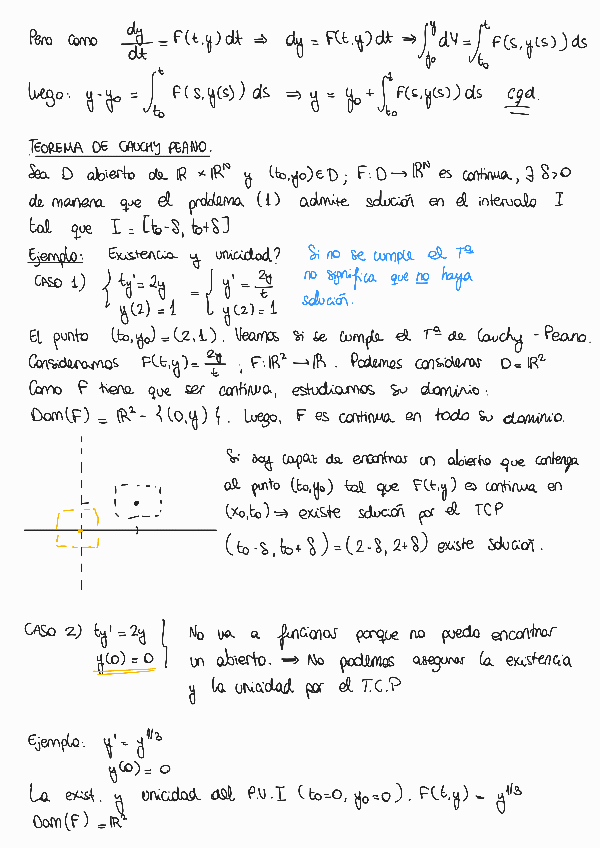 Pero como dy/dt = F(t,y) dt ⇒ dy = F(t,y) dt ⇒ ∫_{y0}^{y} dY = ∫_{t0}^{t} F(s, y(s)) ds
luego: y - y0 = ∫_{t0}^{t} F(s, y(s)) ds ⇒ y = y0 + ∫_{t0}^{t} F(s, y(s)) ds cqd.
TEOREMA DE CAUCHY PEANO.
Sea D abierto de ℝ × ℝ^N y (t0,y0) ∈ D; F: D → ℝ^N es continua, ∃ δ>0
de manera que el problema (1) admite solución en el intervalo I
tal que I = [t0-δ, t0+δ]
Ejemplo: Existencia y unicidad?
Si no se cumple el Tª
no significa que no haya
solución.
CASO 1) { ty' = 2y = { y' = 2y/t
y(2) = 1 y(2) = 1
El punto (t0,y0) = (2,1). Veamos si se cumple el Tª de Cauchy - Peano.
Consideramos F(t,y) = 2y/t ; F: ℝ² → ℝ. Podemos considerar D = ℝ²
Como F tiene que ser continua, estudiamos su dominio:
Dom(F) = ℝ² - {(0,y)}. Luego, F es continua en todo su dominio.
Si soy capaz de encontrar un abierto que contenga
al punto (t0,y0) tal que F(t,y) es continua en
(x0,t0) ⇒ existe solución por el TCP
(t0-δ, t0+δ) = (2-δ, 2+δ) existe solución.
CASO 2) ty' = 2y } No va a funcionar porque no puedo encontrar
y(0) = 0 un abierto. → No podemos asegurar la existencia
y la unicidad por el T.C.P
Ejemplo: y' = y^{1/3}
y(0) = 0
La exist. y unicidad del P.V.I (t0=0, y0=0). F(t,y) = y^{1/3}
Dom(F) = ℝ²